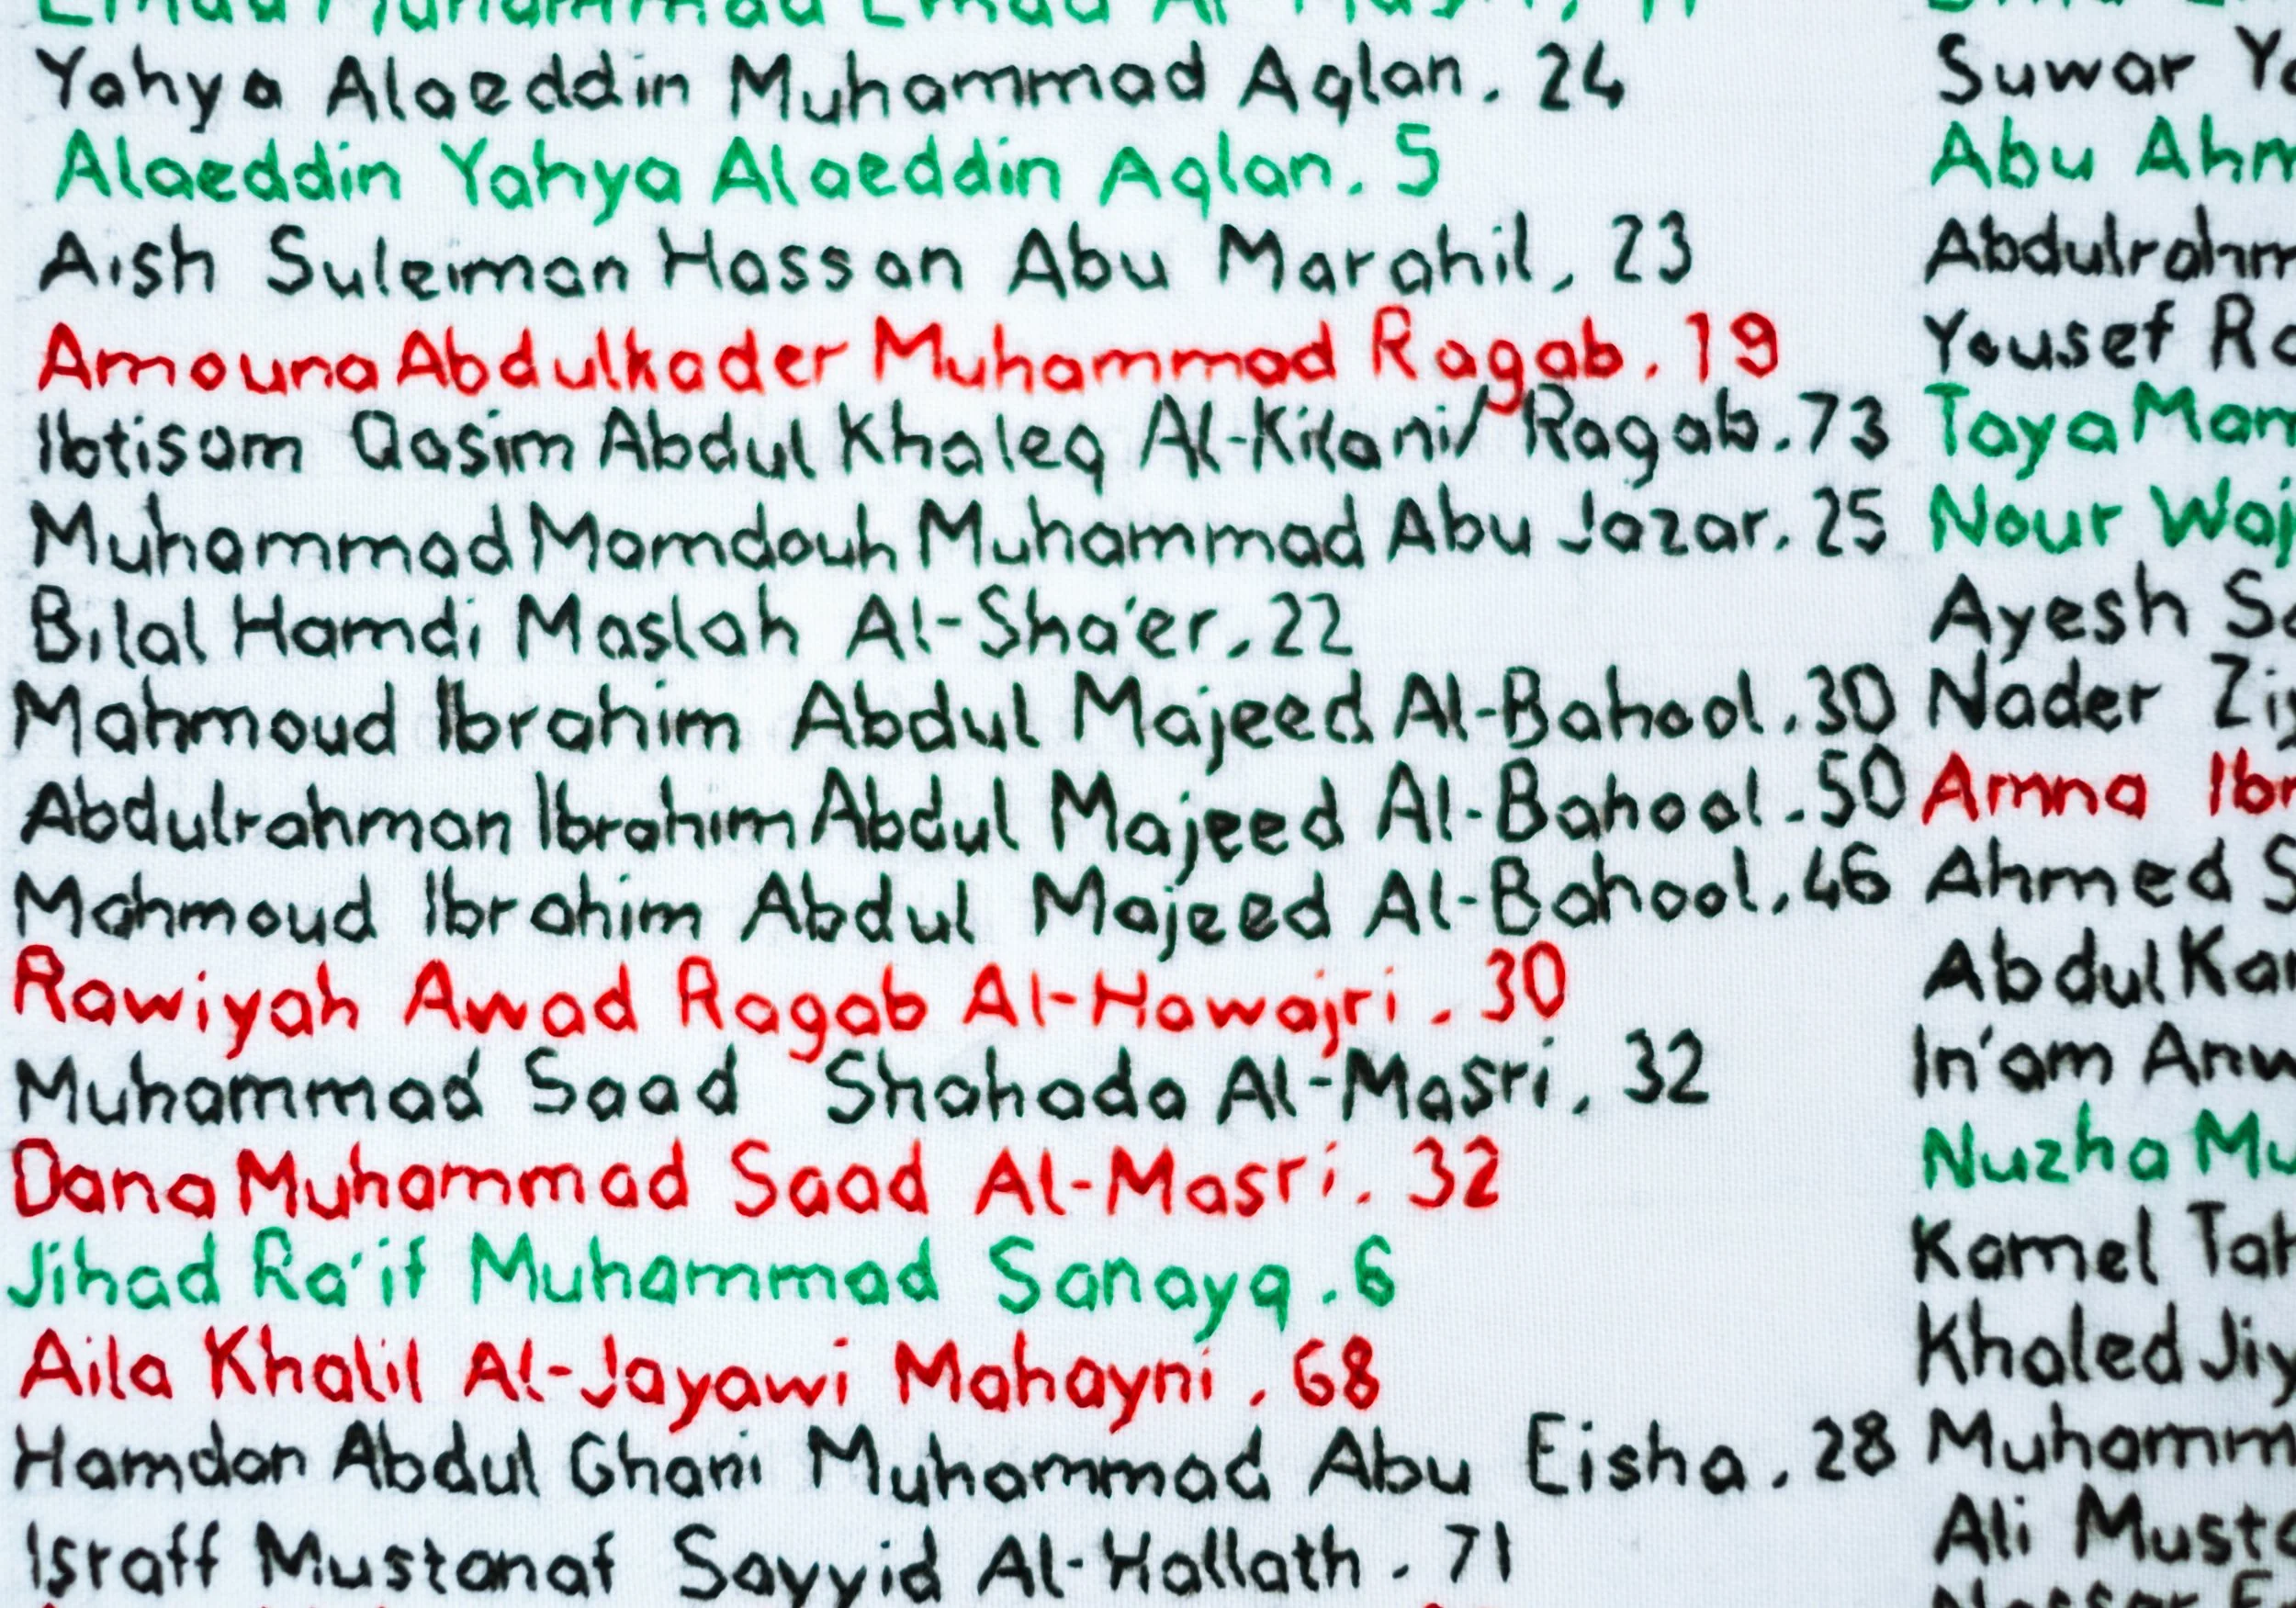 Yahya Alaeddin Muhammad Aqlan. 24
Alaeddin Yahya Alaeddin Aqlan. 5
Aish Suleiman Hassan Abu Marahil, 23
Amouna Abdulkader Muhammad Ragab. 19
Ibtisam Qasim Abdul Khaleq Al-Kilani/ Ragab.73
Muhammad Mamdouh Muhammad Abu Jazar. 25
Bilal Hamdi Maslah Al-Sha'er. 22
Mahmoud Ibrahim Abdul Majeed Al-Bahool.30
Abdulrahman Ibrahim Abdul Majeed Al-Bahool.50
Mahmoud Ibrahim Abdul Majeed Al-Bahool.46
Rawiyah Awad Ragab Al-Hawajri. 30
Muhammad Saad Shahada Al-Masri. 32
Dana Muhammad Saad Al-Masri. 32
Jihad Ra'if Muhammad Sanayq.6
Aila Khalil Al-Jayawi Mahayni. 68
Hamdan Abdul Ghani Muhammad Abu Eisha. 28
Israff Mustanaf Sayyid Al-Hallath. 71
Suwar
Abu
Yousef
Taya
Nour
Ayesh
Nader
Amna
Ahmed
Abdul
In'am
Nuzha
Kamel
Khaled
Ali